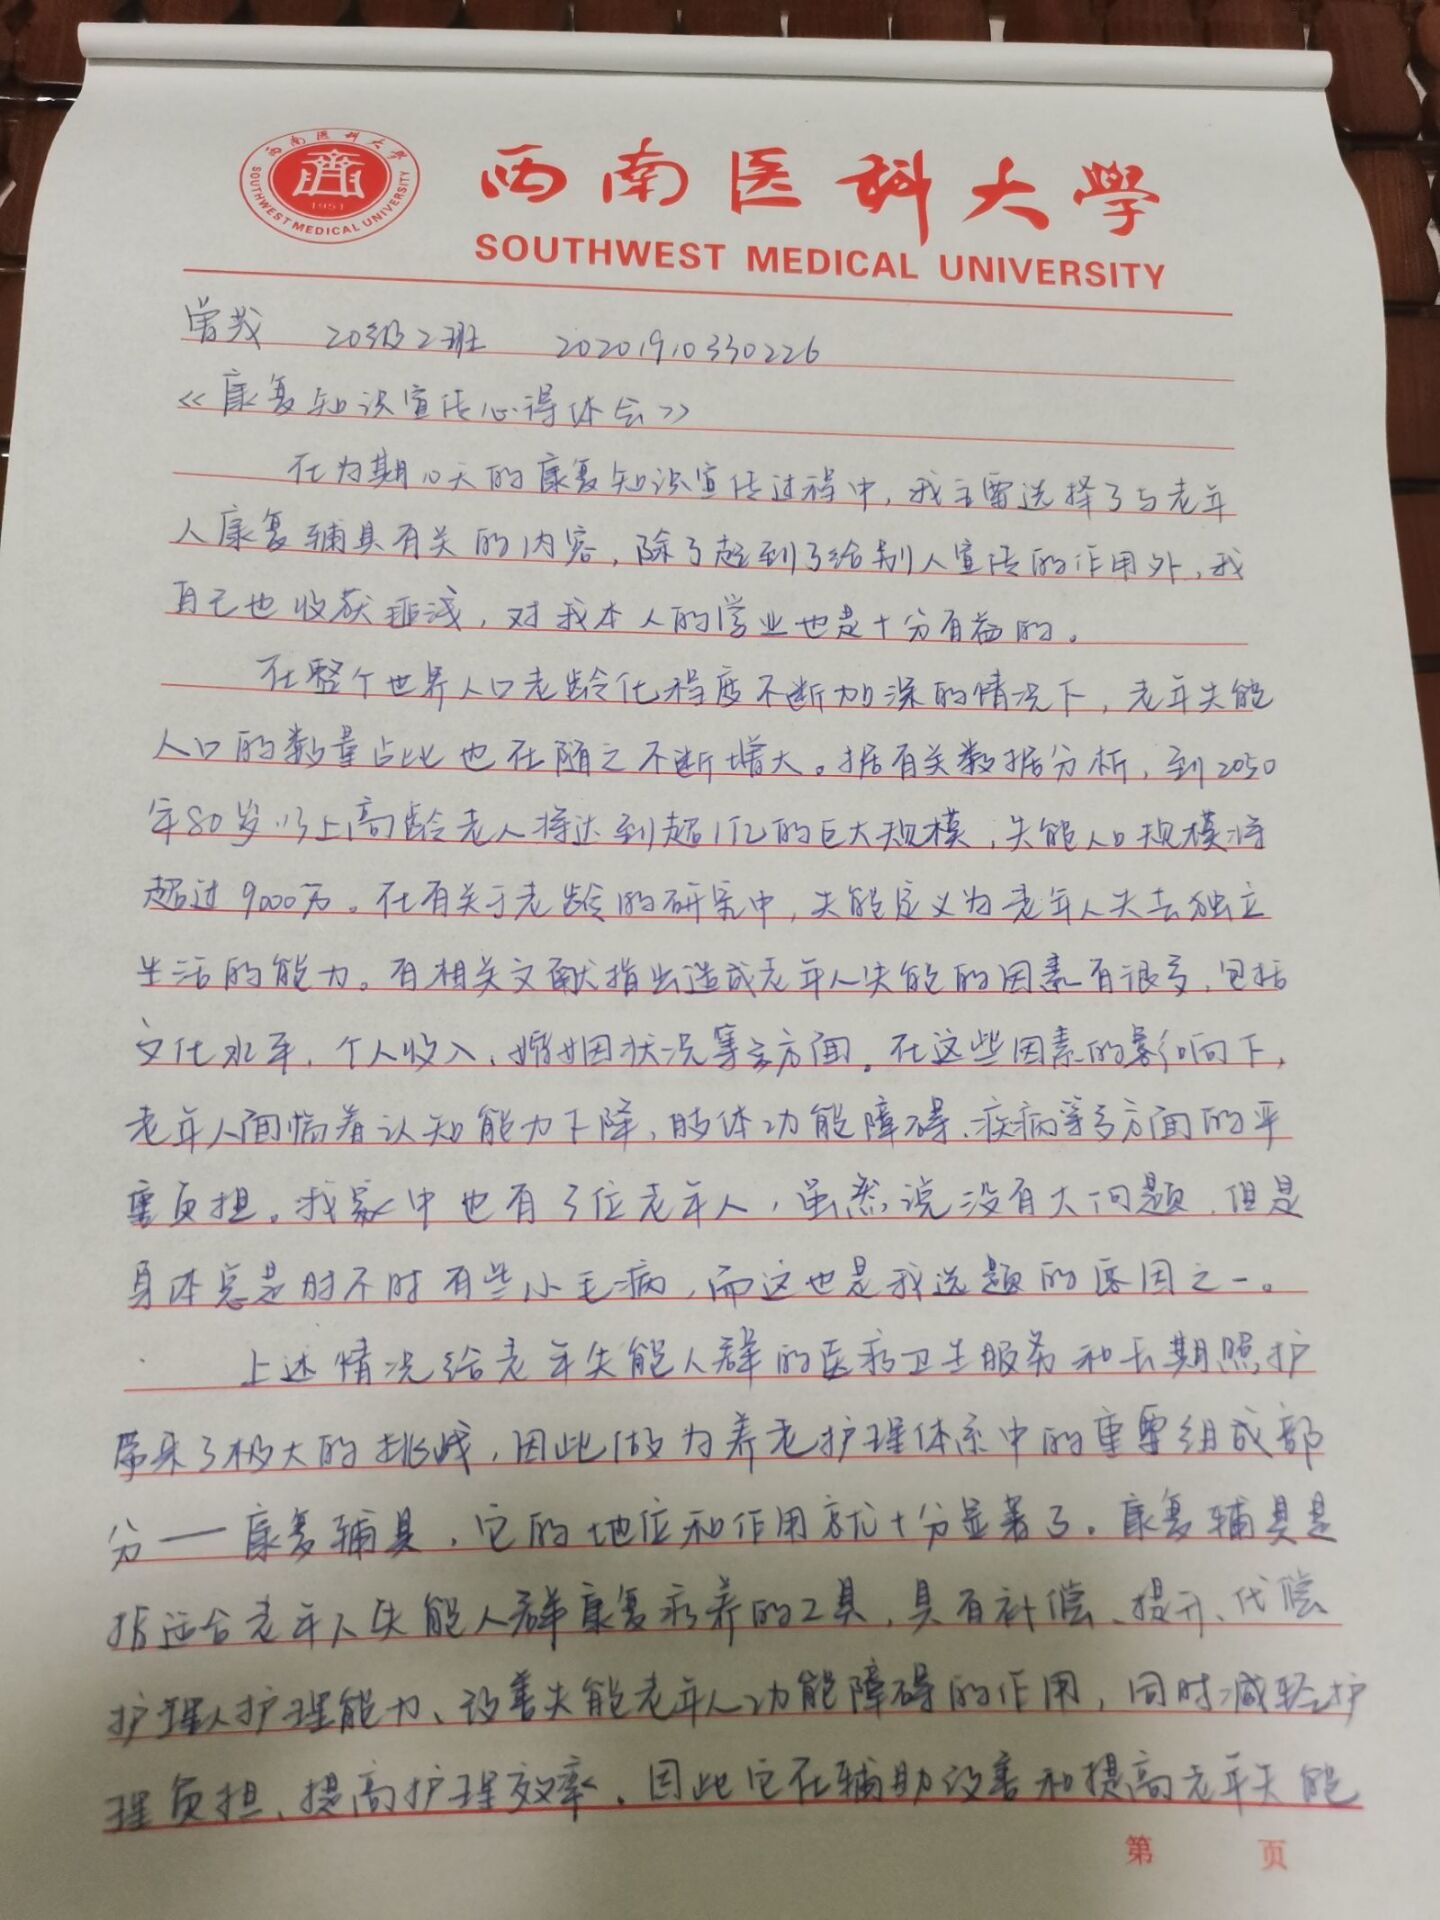 西南医科大学
SOUTHWEST MEDICAL UNIVERSITY
1951
西南医科大学
SOUTHWEST MEDICAL UNIVERSITY
曾 20级2班 20201910330226
《康复知识宣传心得体会》
在为期10天的康复知识宣传过程中,我主要选择了与老年
人康复辅具有关的内容,除了起到了给别人宣传的作用外,我
自己也收获匪浅,对我本人的学业也是十分有益的。
在整个世界人口老龄化程度不断加深的情况下,老年失能
人口的数量占比也在随之不断增大。据有关数据分析,到2050
年80岁以上高龄老人将达到超1亿的巨大规模,失能人口规模将
超过9000万。在有关于老龄的研究中,失能定义为老年人失去独立
生活的能力。有相关文献指出造成老年人失能的因素有很多,包括
文化水平、个人收入、婚姻状况等多方面。在这些因素的影响下,
老年人面临着认知能力下降、肢体功能障碍、疾病等多方面的严
重负担。我家中也有3位老年人,虽然说没有大问题,但是
身体总是时不时有些小毛病,而这也是我选题的原因之一。
上述情况给老年失能人群的医疗卫生服务和长期照护
带来了极大的挑战,因此做为养老护理体系中的重要组成部
分——康复辅具,它的地位和作用就十分显著了。康复辅具是
指适合老年人失能人群康复疗养的工具,具有补偿、提升、代偿
护理人护理能力、改善失能老年人功能障碍的作用,同时减轻护
理负担、提高护理效率。因此它在辅助改善和提高老年失能
第 页